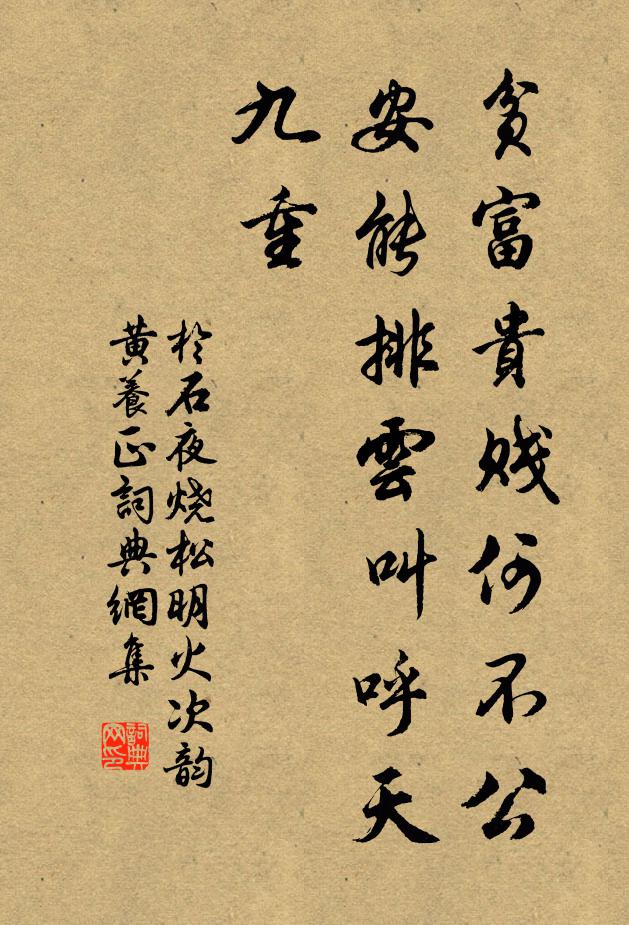 貧富貴賤何不公
安能排雲叫呼天
九重
於石夜烧松明火次韵
黄養正詞典網集
詞典网印